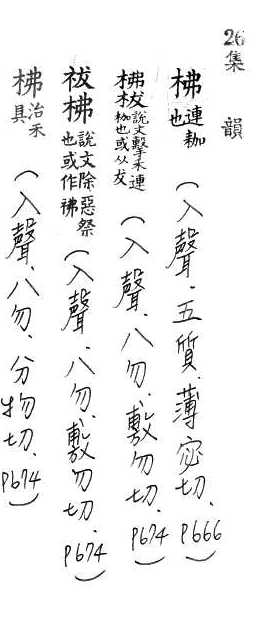 26集 韻
柫連耞也(入聲．五質．薄宓切．P666)
柫柭說文擊禾連枷也或从犮(入聲．八勿．敷勿切．P674)
祓柫說文除惡祭也或作祓(入聲．八勿．敷勿切．P674)
柫治禾具(入聲．八勿．分物切．P674)